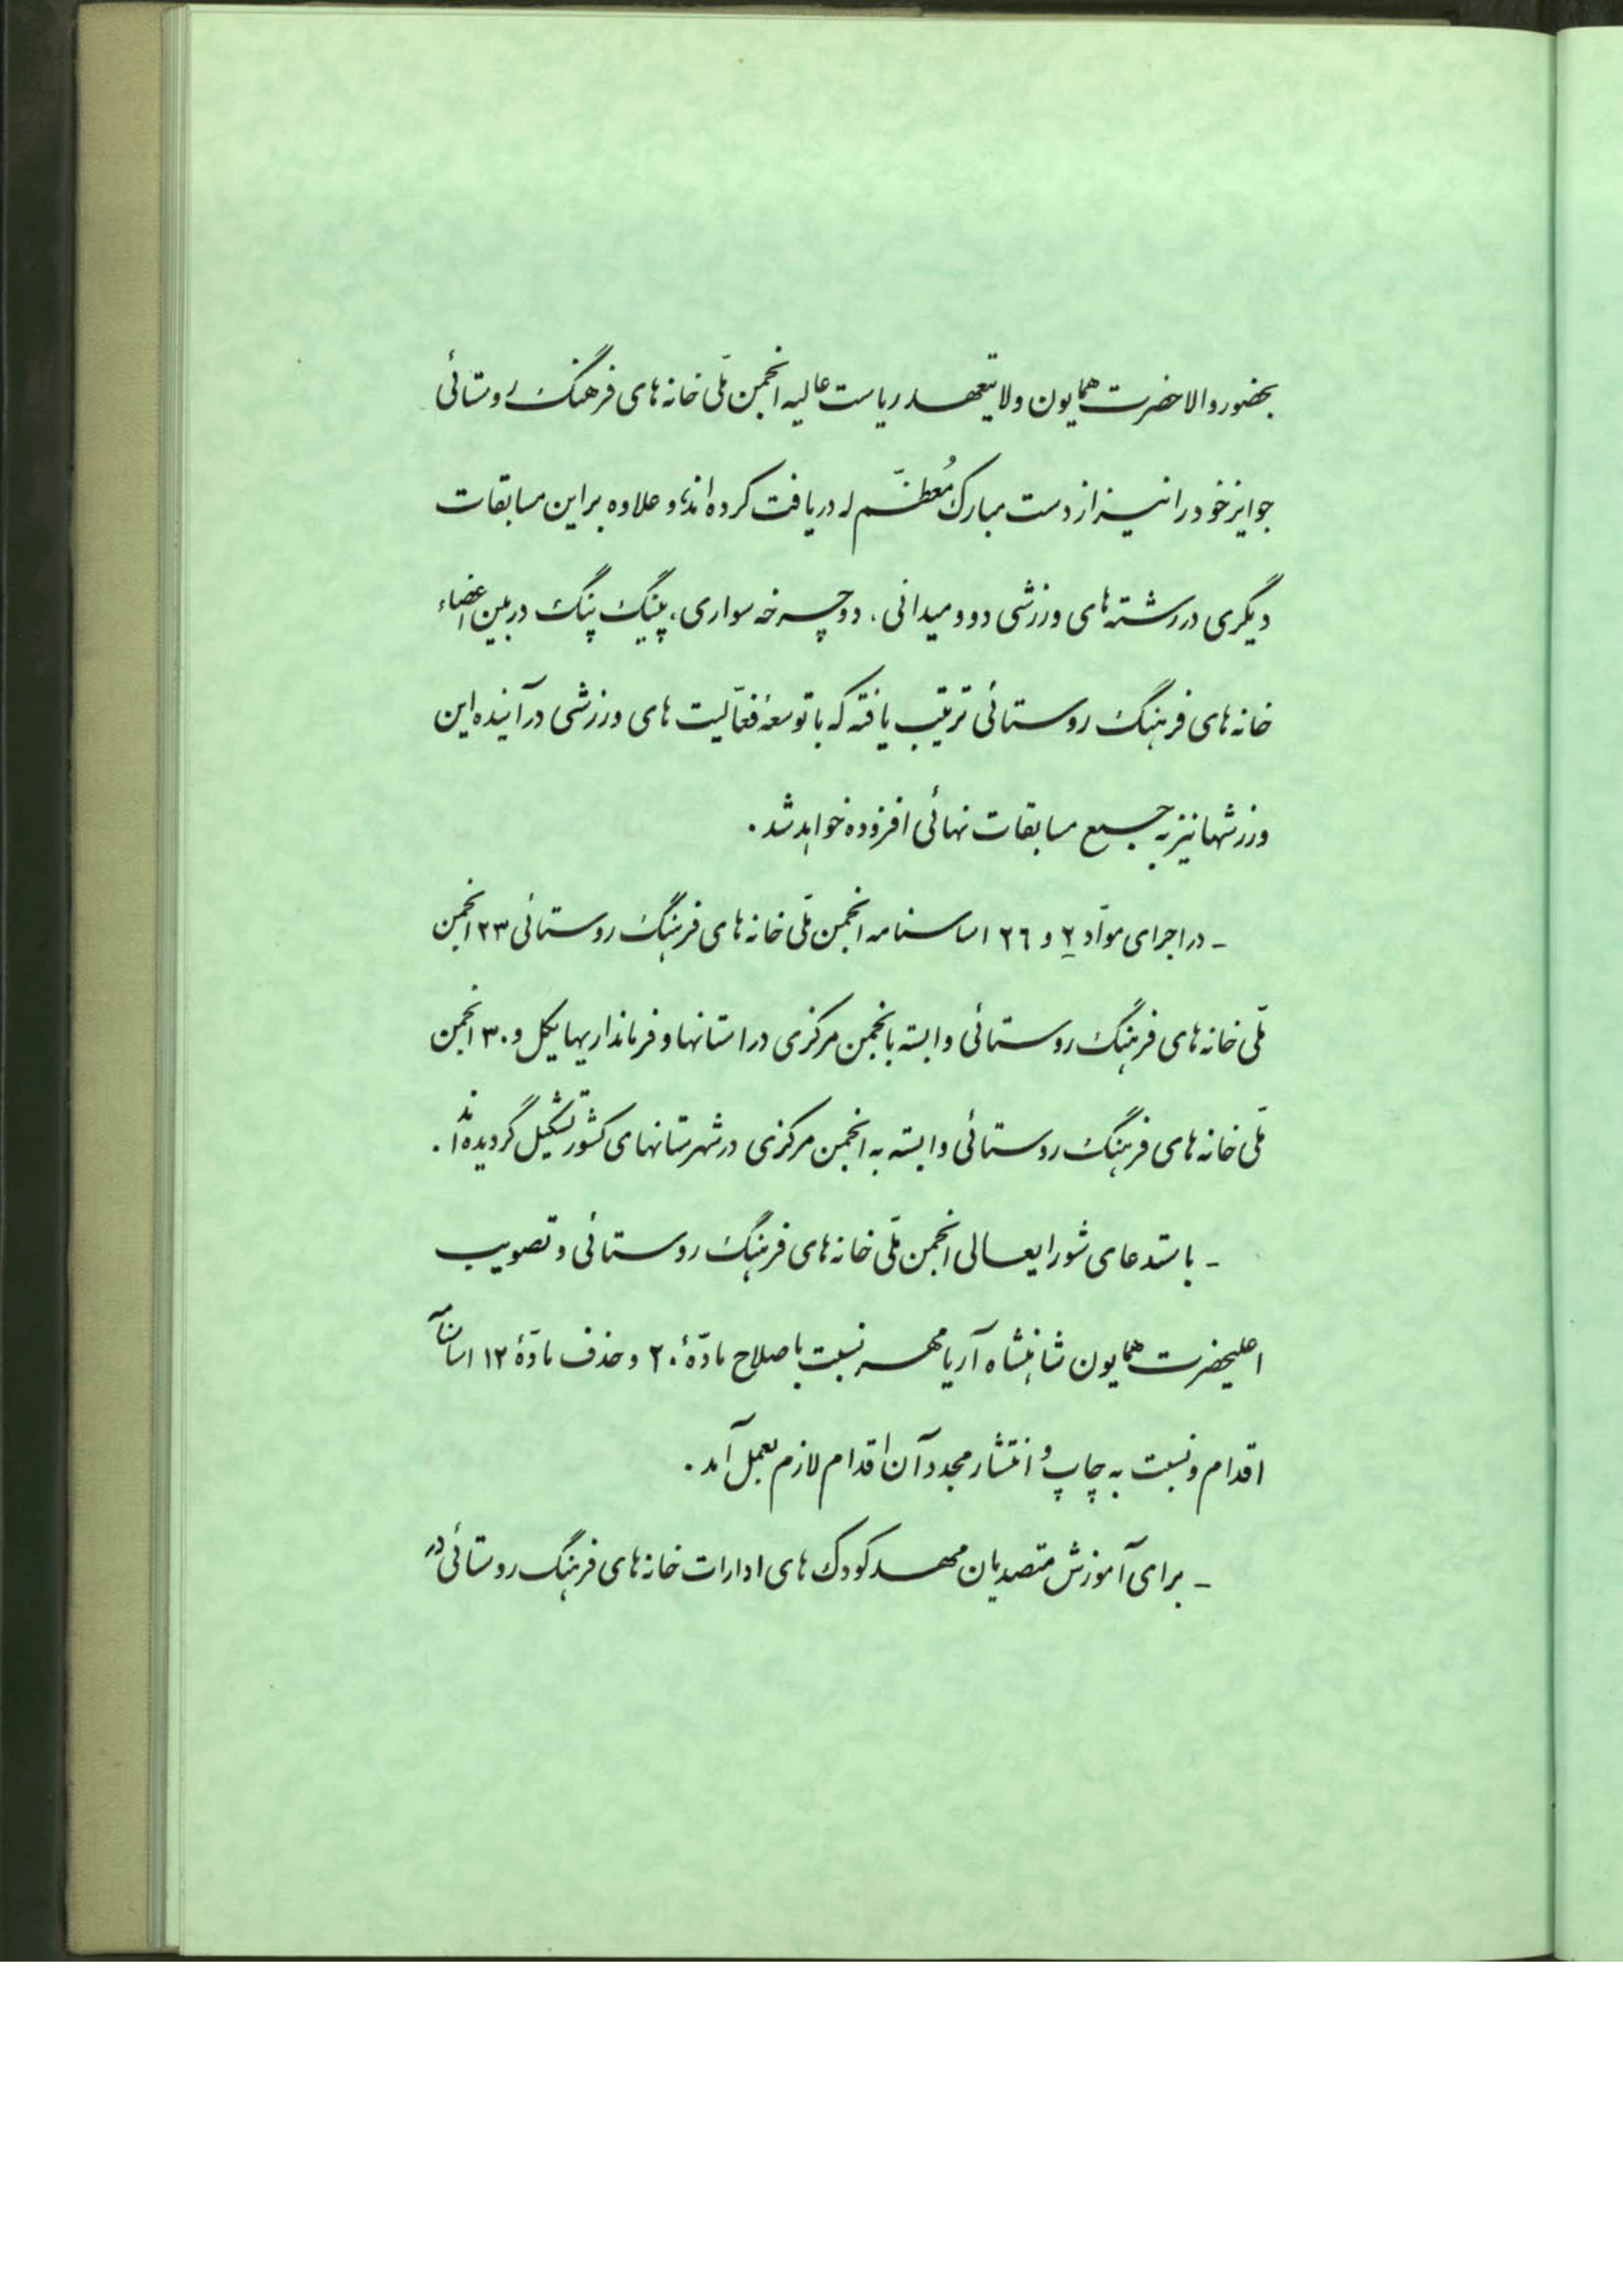 بحضور والاحضرت همایون ولایتعهد ریاست عالیه انجمن ملّی خانه های فرهنگ روستائی
جوایز خود را نیز از دست مبارک مُعظّم له دریافت کرده اند، و علاوه بر این مسابقات
دیگری در رشته های ورزشی دو و میدانی، دوچرخه سواری، پینگ پنگ در بین اعضاء
خانه های فرهنگ روستائی ترتیب یافته که با توسعهٔ فعّالیت های ورزشی در آینده این
ورزشها نیز به جمیع مسابقات نهائی افزوده خواهد شد.
ـ در اجرای موآد ۲ و ۲٦ اساسنامه انجمن ملّی خانه های فرهنگ روستائی ۲۳ انجمن
ملّی خانه های فرهنگ روستائی وابسته بانجمن مرکزی در استانها و فرمانداریهایکل و ۳۰ انجمن
ملّی خانه های فرهنگ روستائی وابسته به انجمن مرکزی در شهرستانهای کشور تشکیل گردیده اند.
ـ باستدعای شورایعالی انجمن ملّی خانه های فرهنگ روستائی و تصویب
اعلیحضرت همایون شاهنشاه آریامهر نسبت باصلاح مادّهٔ ۲۰ و حذف مادّهٔ ۱۲ اساسنامه
اقدام و نسبت به چاپ و انتشار مجدد آن اقدام لازم بعمل آمد.
ـ برای آموزش متصدیان مهد کودک های ادارات خانه های فرهنگ روستائی در